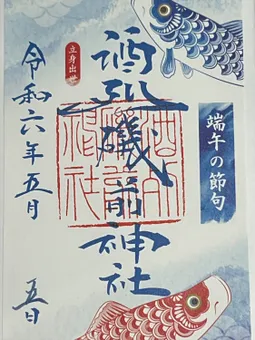 端午の節句
酒列磯前神社
立身出世
令和六年五月
五日
酒列
磯前
神社